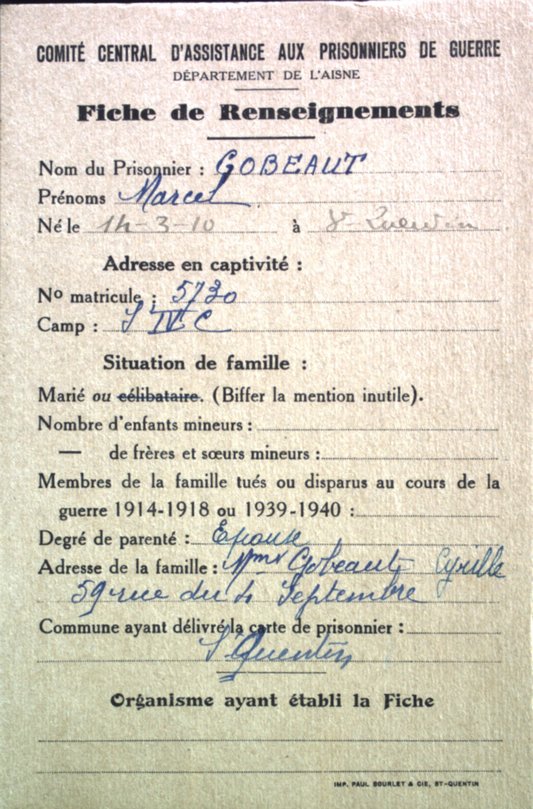 COMITÉ CENTRAL D'ASSISTANCE AUX PRISONNIERS DE GUERRE
DÉPARTEMENT DE L'AISNE
Fiche de Renseignements
Nom du Prisonnier : GOBEAUT
Prénoms Marcel
Né le 14-3-10 à St Quentin
Adresse en captivité :
No matricule : 5730
Camp : S IV C
Situation de famille :
Marié ou célibataire. (Biffer la mention inutile).
Nombre d'enfants mineurs :
— de frères et sœurs mineurs :
Membres de la famille tués ou disparus au cours de la
guerre 1914-1918 ou 1939-1940 :
Degré de parenté : Epouse
Adresse de la famille : Mme Gobeaut Cyrille
59 rue du 4 Septembre
Commune ayant délivré la carte de prisonnier :
St Quentin
Organisme ayant établi la Fiche
IMP. PAUL BOURLET & CIE, ST-QUENTIN